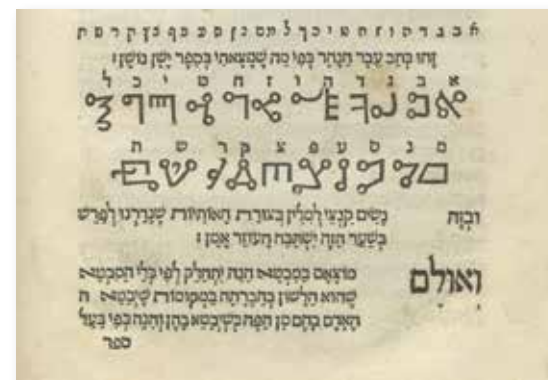 א ב ג ד ה ו ז ח ט י כ ך ל מ ם נ ן ס ע פ ף צ ץ ק ר ש ת
זהו כתב עבר הנהר כפי מה שמצאתי בספר ישן נושן:
א ב ג ד ה ו ז ח ט י כ ל
מ נ ס ע פ צ ק ר ש ת
ובזה נשים קנצי למלין בצורת האותיות שנדרנו לפרש
בשער הזה ישתבח העוזר אמן:
ואולם מוצאם במבטא הנה יתחלק לפי כלי המבטא
שהוא הלשון בחברתה במקומות שיבטא ה
האדם בהם מן הפה כשיבטא בהן והנה כפי בעל
ספר